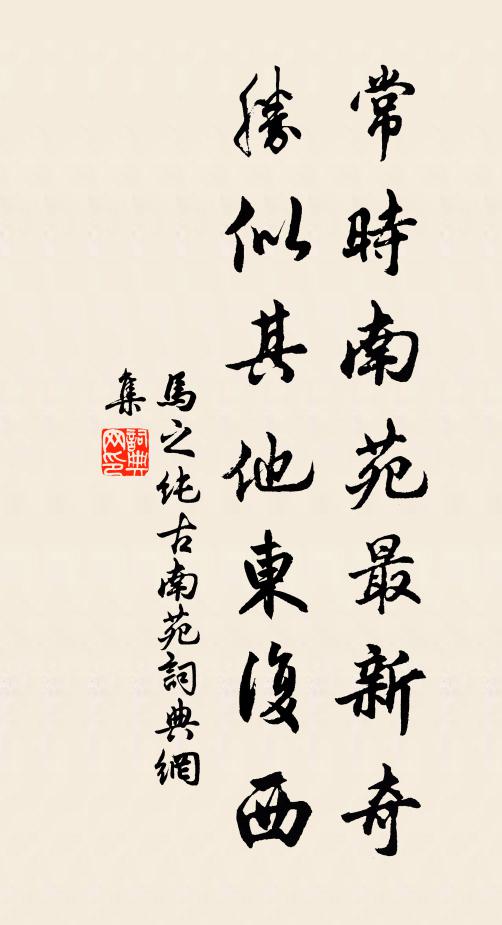 常時南苑最新奇
勝似其他東復西
馬之純古南苑詞典網
集
詞典网印